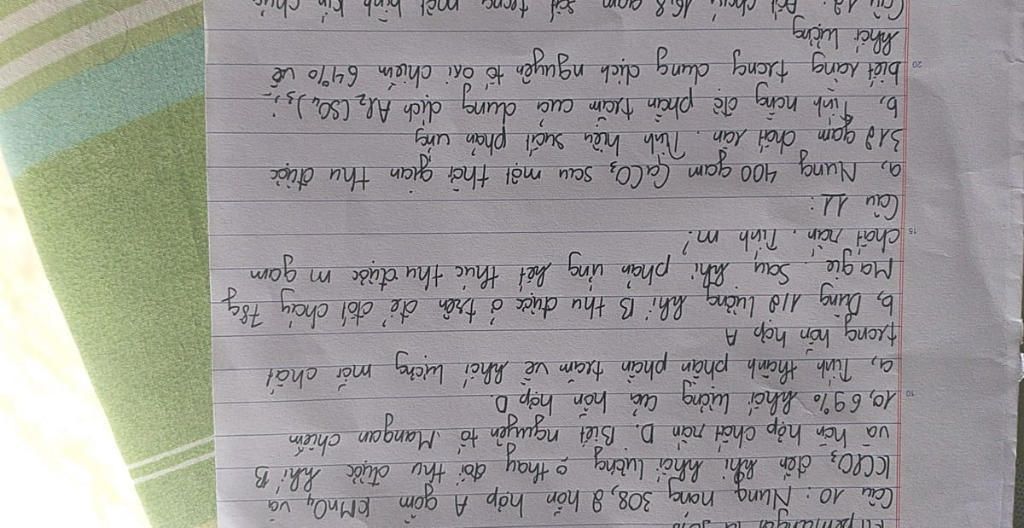 Câu 10: Nung nóng 308,2 hỗn hợp A gồm KMnO4 và
KClO3 đến khi khối lượng o thay đổi thu được khí B
và hỗn hợp chất rắn D. Biết nguyên tố Mangan chiếm
10,69% khối lượng của hỗn hợp D.
a, Tính thành phần phần trăm về khối lượng mỗi chất
trong hỗn hợp A
b, Dùng 1/2 lượng khí B thu được ở trên để đốt cháy 78g
Magie. Sau khi phản ứng kết thúc thu được m gam
chất rắn. Tính m?
Câu 11:
a, Nung 400 gam CaCO3 sau một thời gian thu được
312 gam chất rắn. Tính hiệu suất phản ứng
b, Tính nồng độ phần trăm của dung dịch Al2(SO4)3;
biết rằng trong dung dịch nguyên tố oxi chiếm 64% về
khối lượng
Câu 12: Đốt cháy 16,8 gam sắt trong một bình kín chứa